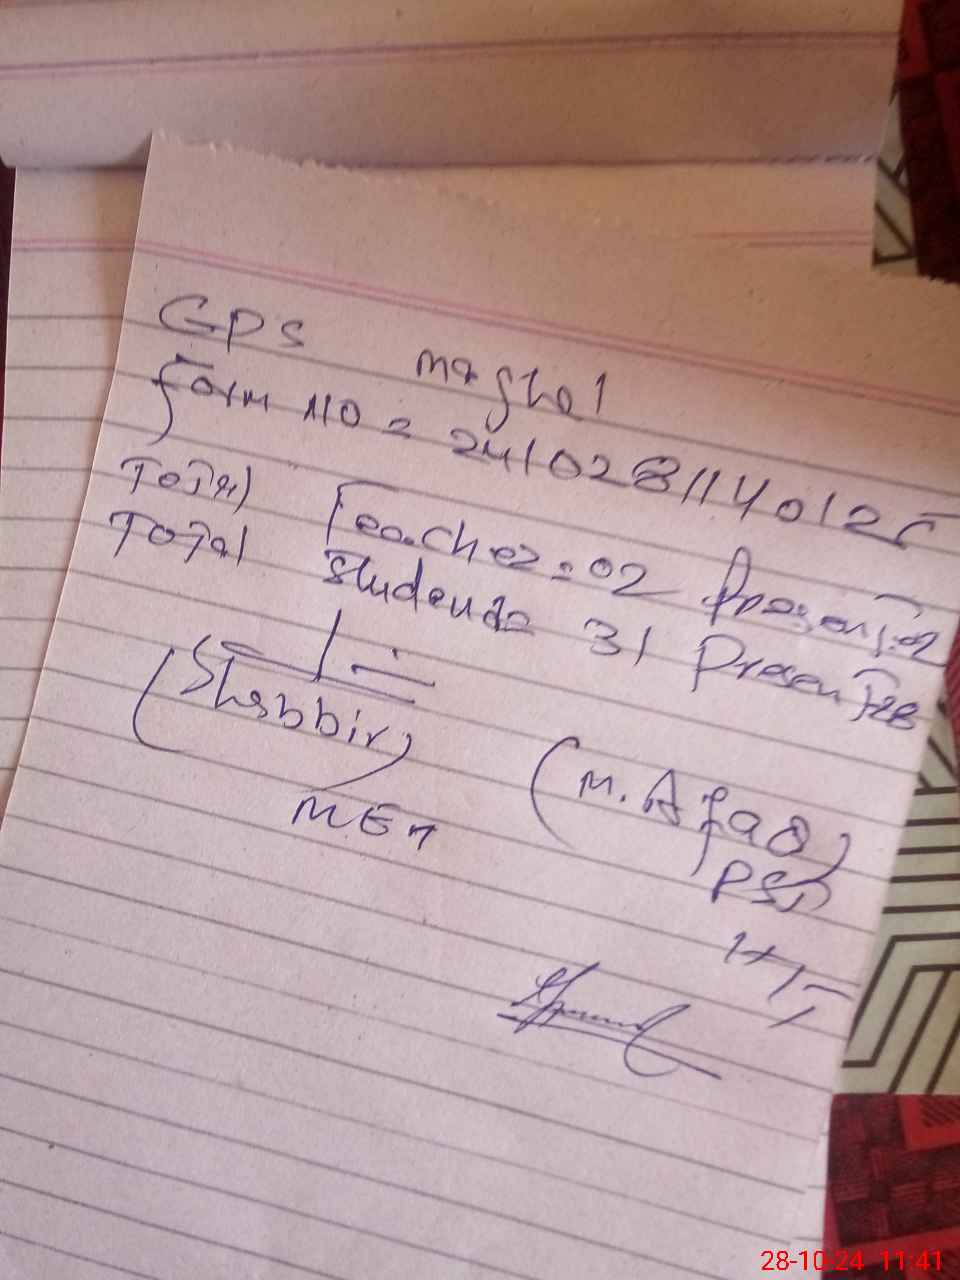 GPS Maghal
Form NO = 2410281140125
Total Teacher = 02 Present = 02
Total Students 31 Present = 28
(Shabbir)
MEA
(M. Afaq)
PST
28-10-24 11:41